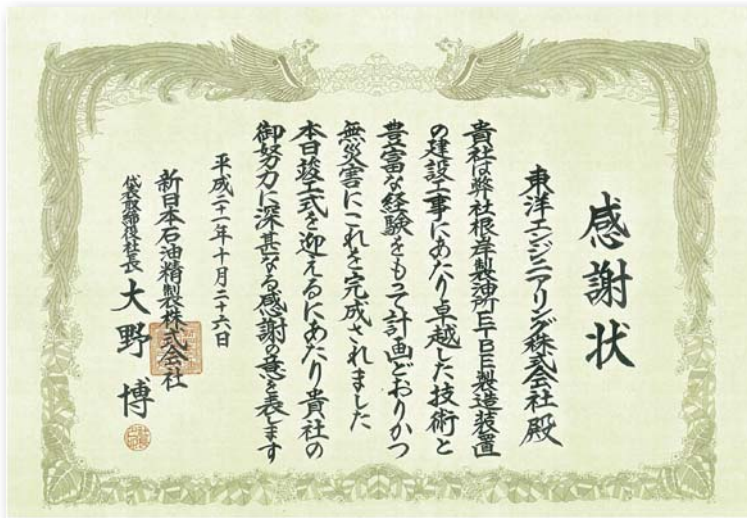 感謝状
東洋エンジニアリング株式会社殿
貴社は弊社根岸製油所ETBE製造装置
の建設工事にあたり卓越した技術と
豊富な経験をもって計画どおりかつ
無災害にこれを完成されました
本日竣工式を迎えるにあたり貴社の
御努力に深甚なる感謝の意を表します
平成二十一年十月二十六日
新日本石油精製株式会社
代表取締役社長 大野 博